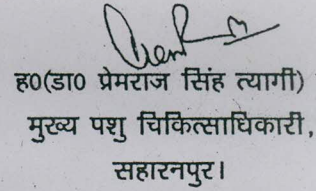 ह0(डा0 प्रेमराज सिंह त्यागी)
मुख्य पशु चिकित्साधिकारी,
सहारनपुर।